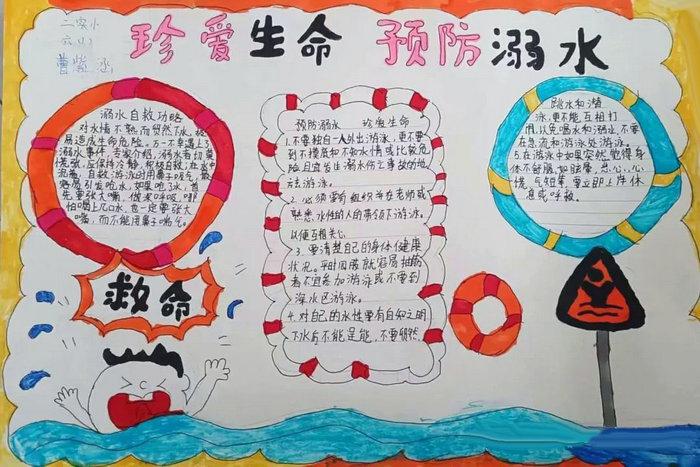 二实小
六(1)
曹紫涵
珍爱生命 预防溺水
溺水自救功略
对水情不熟而贸然下水,极
易造成生命危险。万一不幸遇上了
溺水事件,专家介绍,溺水者切莫
慌张,应保持冷静,积极自救:在水中
流着,自救:游泳时用鼻子吸气,最
容易引起呛水,如果呛了水,首
先要张大嘴,做深呼吸,哪
怕喝上几口水,也一定要张大
嘴,而不能用鼻子喘气。
预防溺水 珍爱生命
1.不要独自一人外出游泳,更不要
到不摸底和不知水情或比较危
险且宜发生溺水伤亡事故的地
方去游泳。
2.必须要有组织并在老师或
熟悉水性的人的带领下游泳。
以便互相关心
3.要清楚自己的身体健康
状况。平时四肢就容易抽筋
者不宜参加游泳或不要到
深水区游泳。
4.对自己的水性要有自知之明
下水后不能逞能,不要贸然
跳水和潜
泳,更不能互相打
闹,以免喝水和溺水,不要
在急流和游泳处游泳。
5.在游泳中如果突然觉得身
体不舒服,如眩晕,恶心,心
慌,气短等,要立即上岸休
息或呼救。
救命